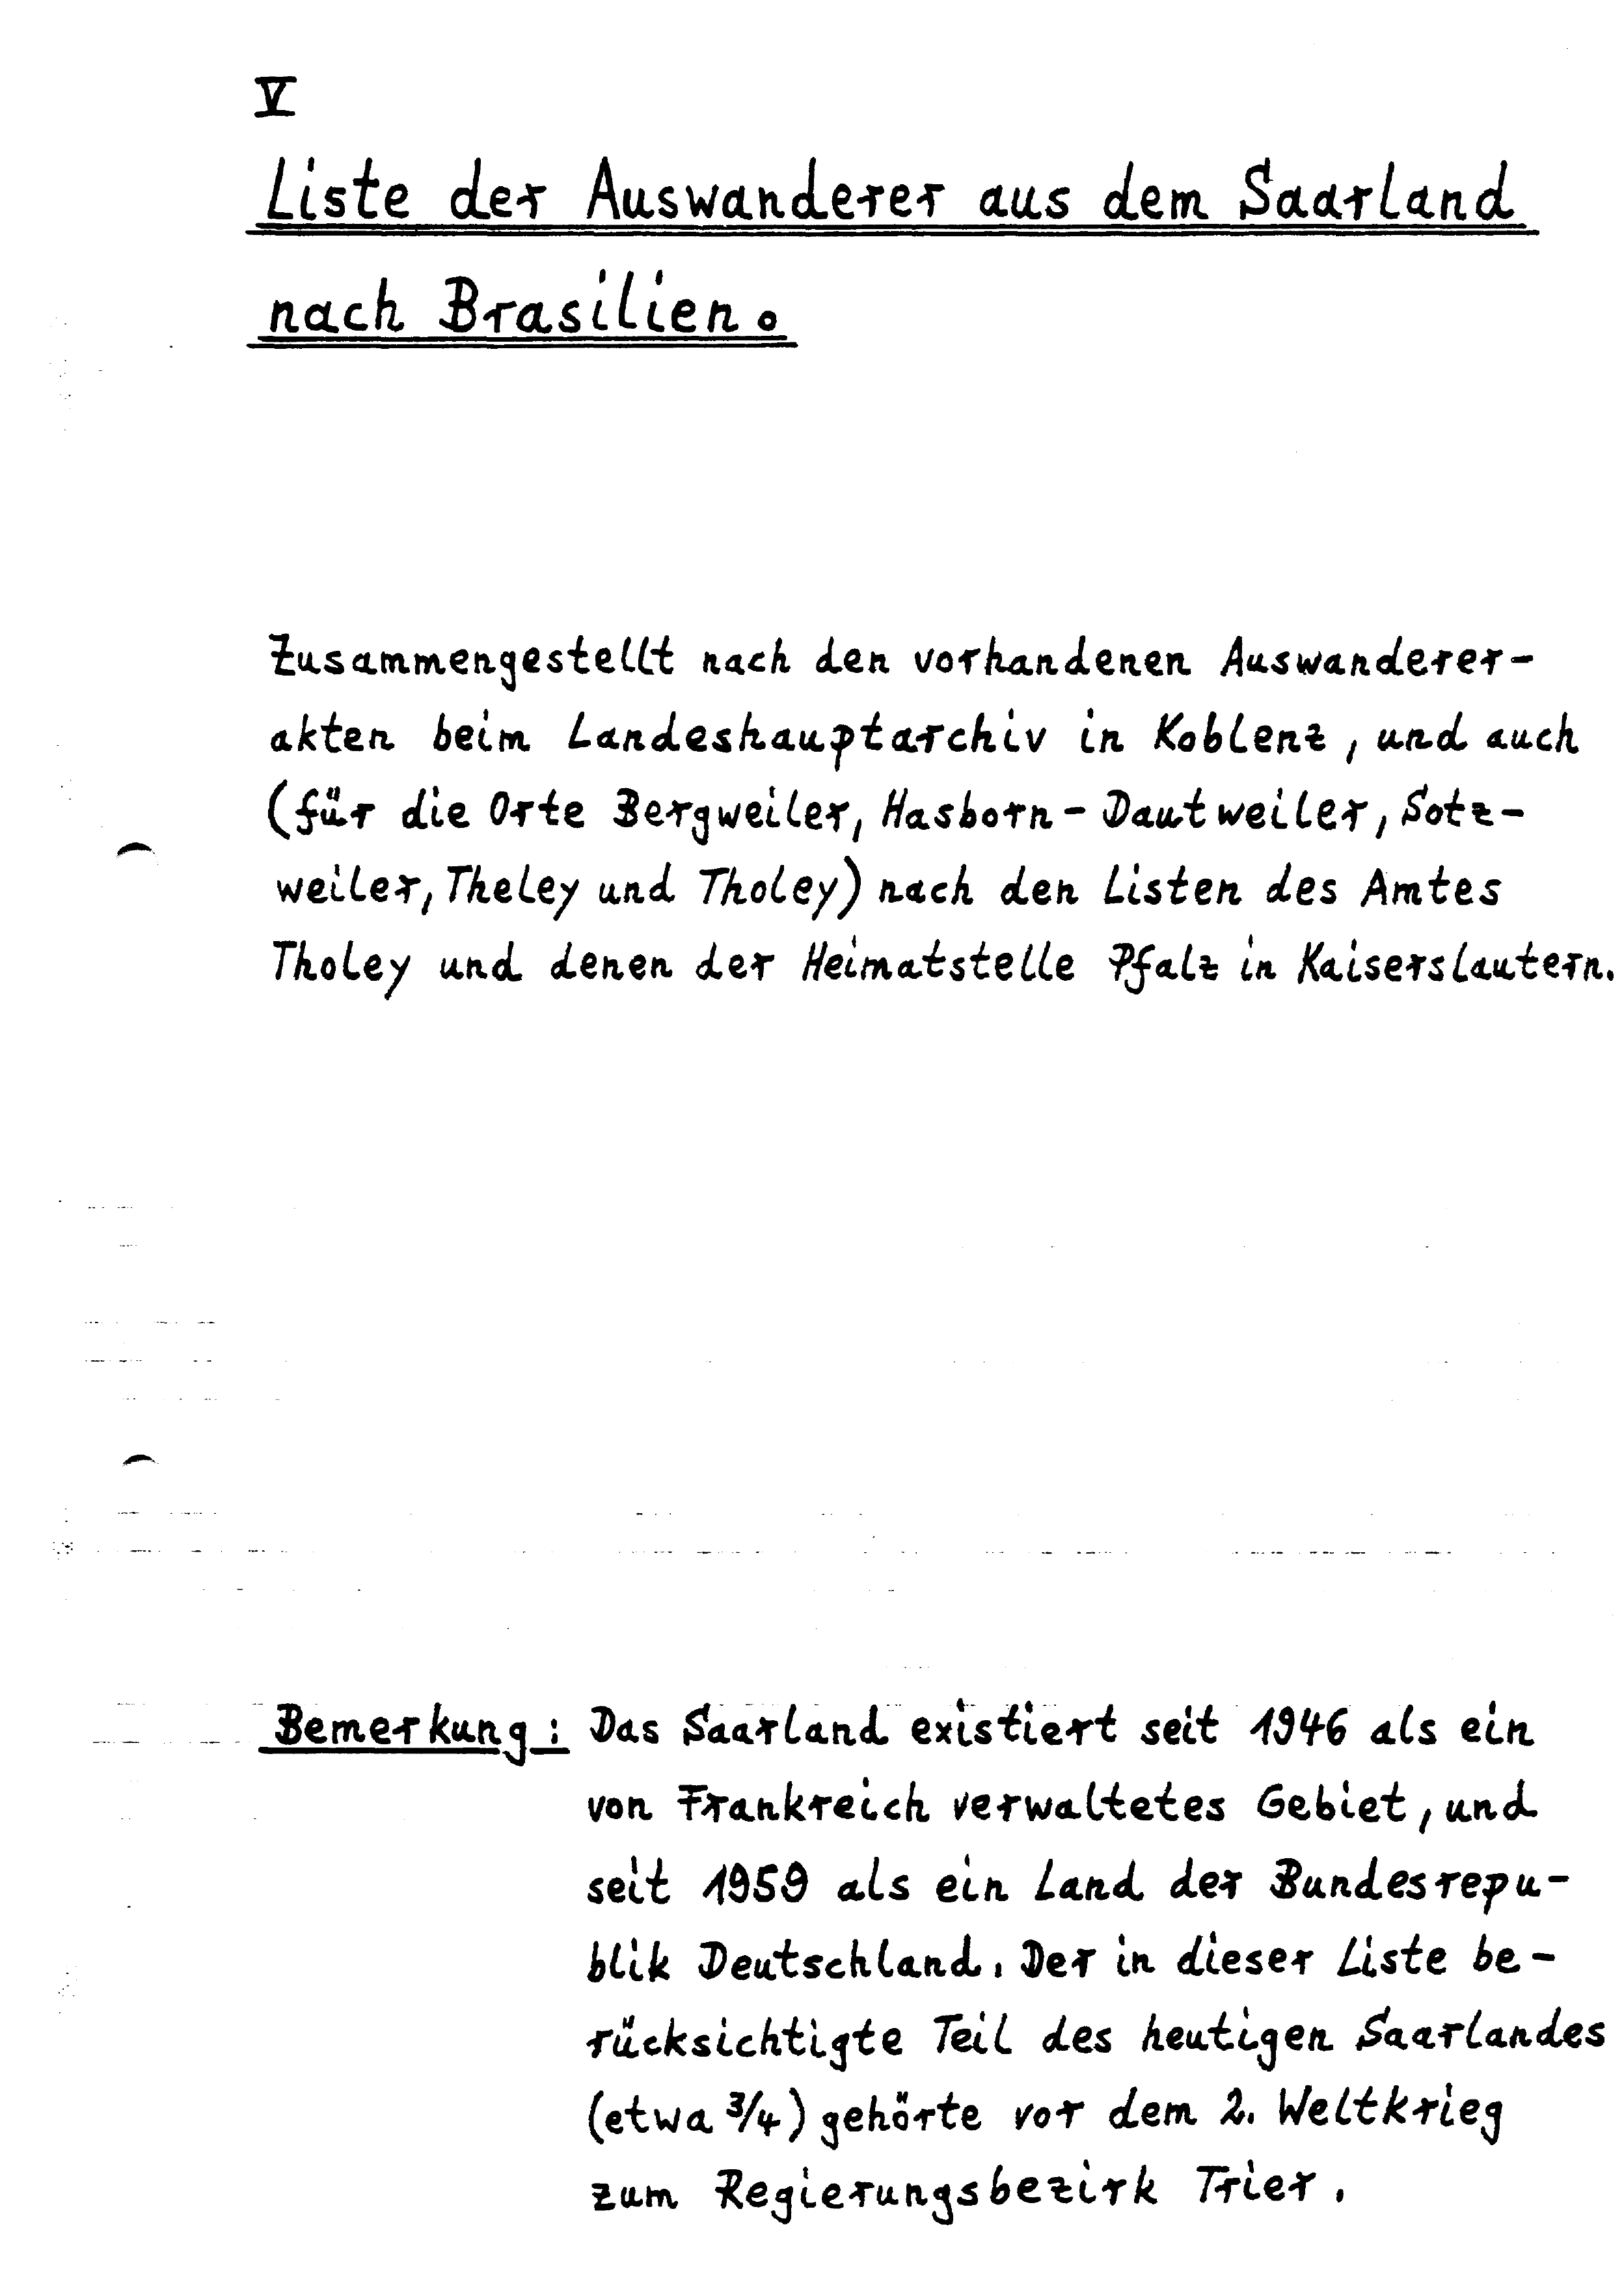 V
Liste der Auswanderer aus dem Saarland
nach Brasilien.
Zusammengestellt nach den vorhandenen Auswanderer-
akten beim Landeshauptarchiv in Koblenz, und auch
(für die Orte Bergweiler, Hasborn-Dautweiler, Sotz-
weiler, Theley und Tholey) nach den Listen des Amtes
Tholey und denen der Heimatstelle Pfalz in Kaiserslautern.
Bemerkung: Das Saarland existiert seit 1946 als ein
von Frankreich verwaltetes Gebiet, und
seit 1959 als ein Land der Bundesrepu-
blik Deutschland. Der in dieser Liste be-
rücksichtigte Teil des heutigen Saarlandes
(etwa 3/4) gehörte vor dem 2. Weltkrieg
zum Regierungsbezirk Trier.